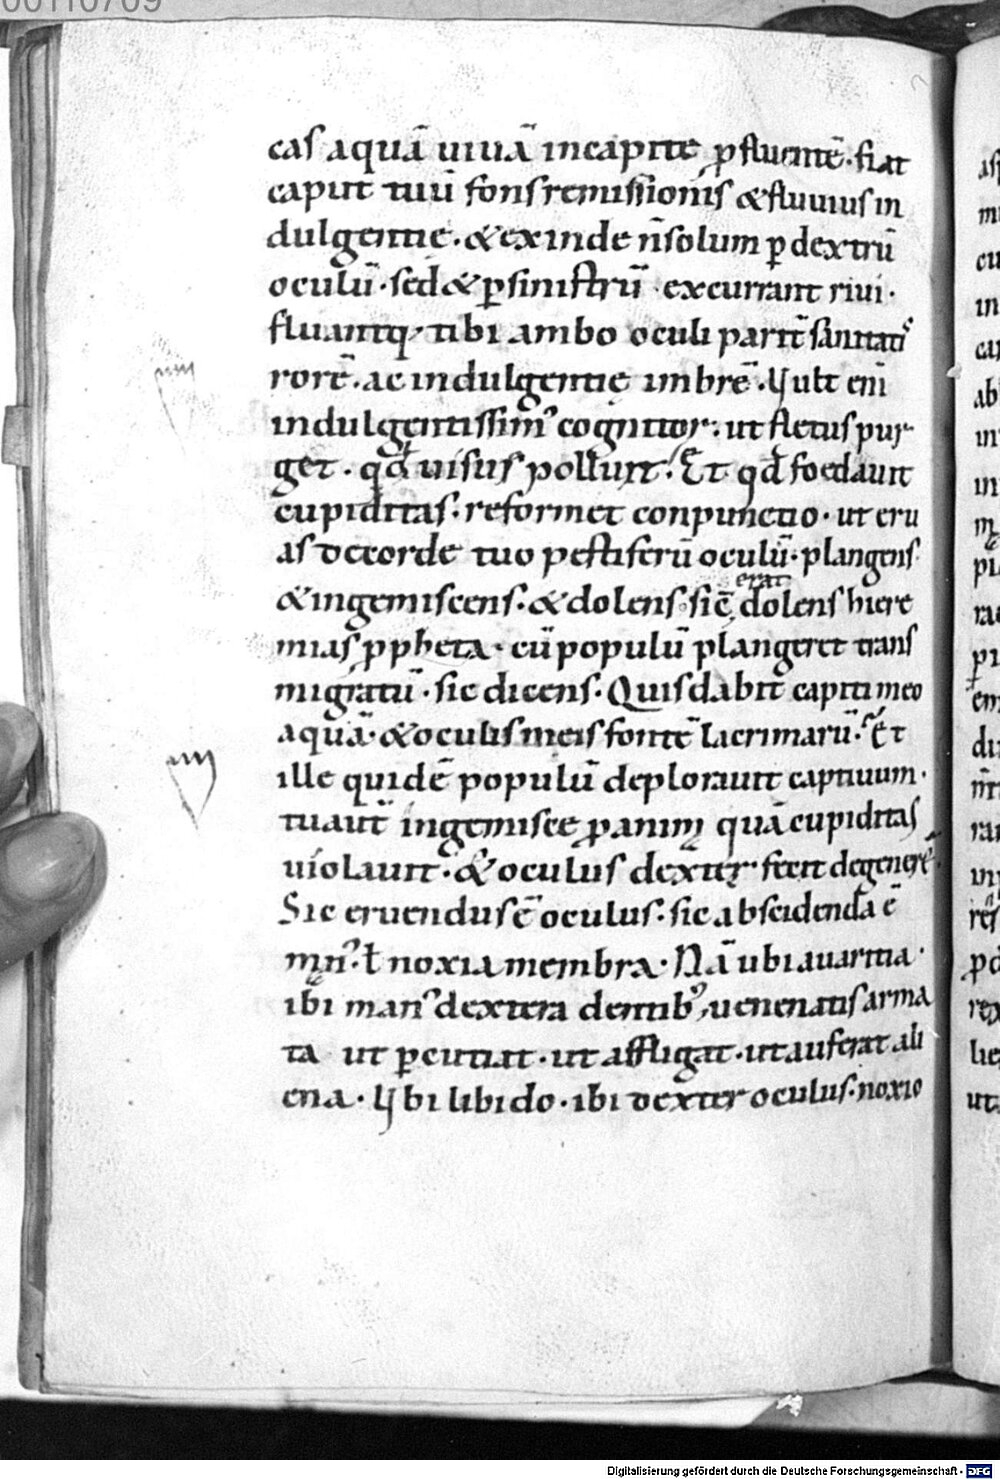 00110709
cas aquā uiuā incapite ꝓfluentē·fiat
caput tuū fons remissionis &fluuius in
dulgentię·&exinde ñsolum ꝑ dextrū
oculū·sed&ꝑsinistrū·excurrant riui·
fluantq; tibi ambo oculi parit̄ sanitatis
rorē·ac indulgentię imbrē·Uult enī
indulgentissim᾽ cognitor·ut fletus pur
get·qd̄ uisus polluit·Et qd̄ foedauit
cupiditas·reformet conpunctio·ut eru
as decorde tuo pestiferū oculū·plangens
&ingemiscens·&dolens·sic̄ erat dolens hiere
mias ꝓpheta·cū populū plangeret trans
migratū·sic dicens·Quis dabit capiti meo
aquā·&oculis meis fontē lacrimarū·Et
ille quidē populū deplorauit captiuum·
tu aut̄ ingemisce ꝓ animę quā cupiditas
uiolauit·& oculus dexter fecit degenerē·
Sic eruendus ē oculus·sic abscidenda ē
man᾽·ł noxia membra·Nā ubi auaritia·
ibi man᾽ dextera dentib᾽ uenenatis arma
ta ut ꝑcutiat·ut affligat·ut auferat ali
ena·Ubi libido·ibi dexter oculus·noxio
Digitalisierung gefördert durch die Deutsche Forschungsgemeinschaft - DFG